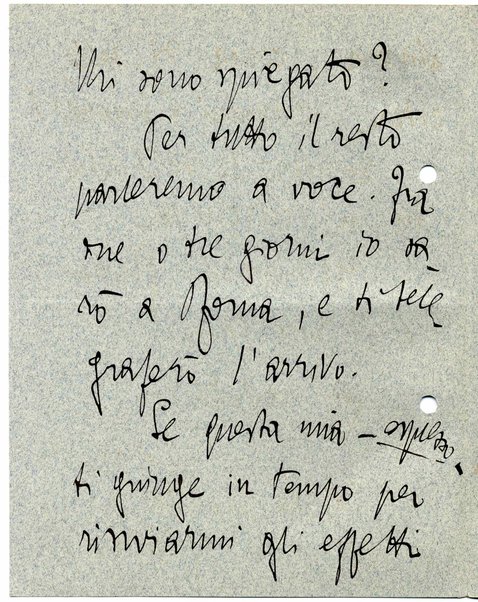 Mi sono spiegato?
Per tutto il resto
parleremo a voce. Fra
due o tre giorni io sa
rò a Roma, e ti tele
graferò l'arrivo.
Se questa mia – espresso –
ti giunge in tempo per
rinviarmi gli effetti